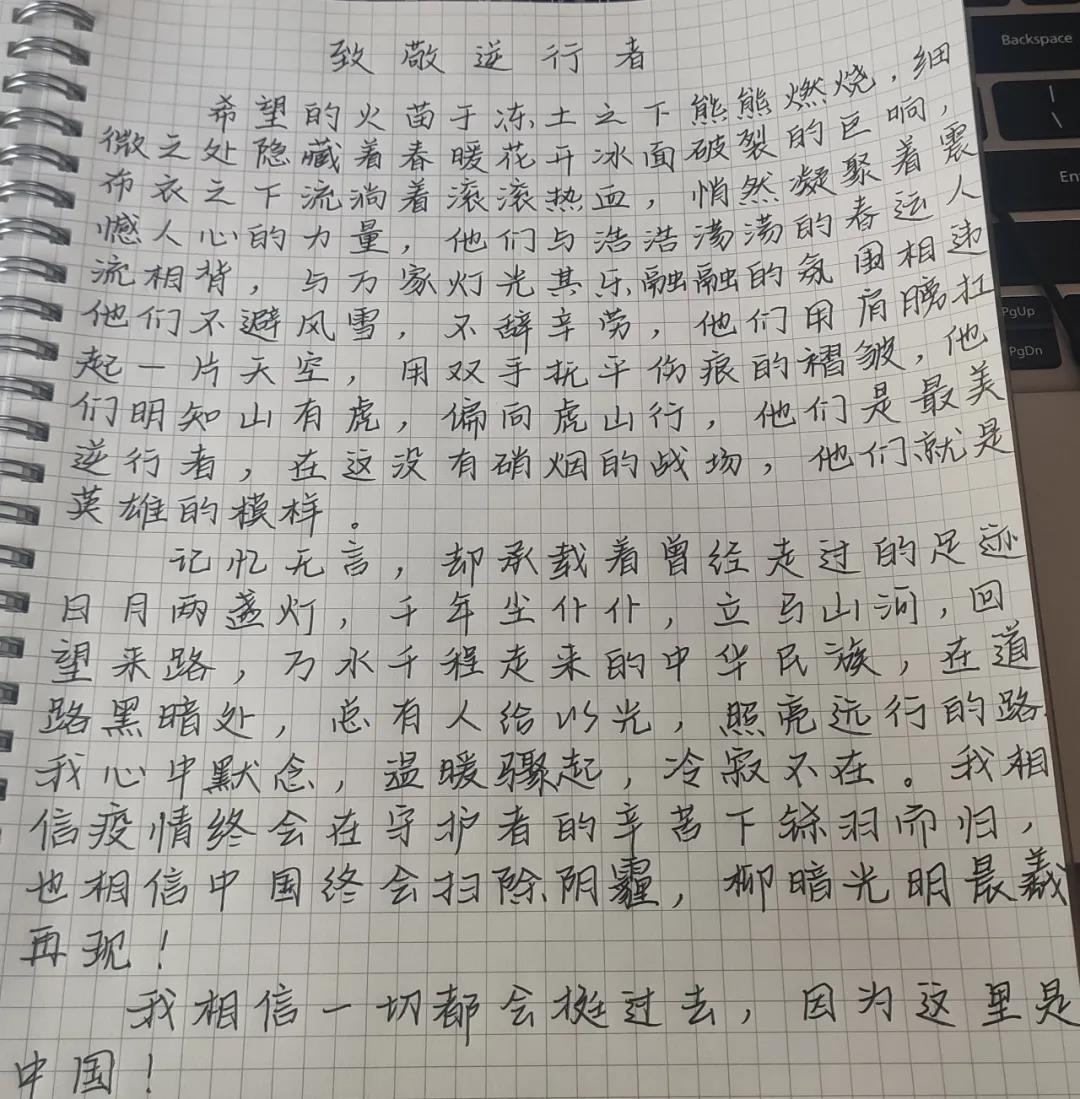 致敬逆行者
希望的火苗于冻土之下熊熊燃烧，细
微之处隐藏着春暖花开冰面破裂的巨响，
布衣之下流淌着滚滚热血，悄然凝聚着震
憾人心的力量，他们与浩浩荡荡的春运人
流相背，与万家灯光其乐融融的氛围相违
他们不避风雪，不辞辛劳，他们用肩膀扛
起一片天空，用双手抚平伤痕的褶皱，他
们明知山有虎，偏向虎山行，他们是最美
逆行者，在这没有硝烟的战场，他们就是
英雄的模样。
记忆无言，却承载着曾经走过的足迹
日月两盏灯，千年尘仆仆，立马山河，回
望来路，万水千程走来的中华民族，在道
路黑暗处，总有人给以光，照亮远行的路
我心中默念，温暖骤起，冷寂不在。我相
信疫情终会在守护者的辛苦下铩羽而归，
也相信中国终会扫除阴霾，柳暗光明晨羲
再现！
我相信一切都会挺过去，因为这里是
中国！
Backspace
|
\
En
PgUp
PgDn